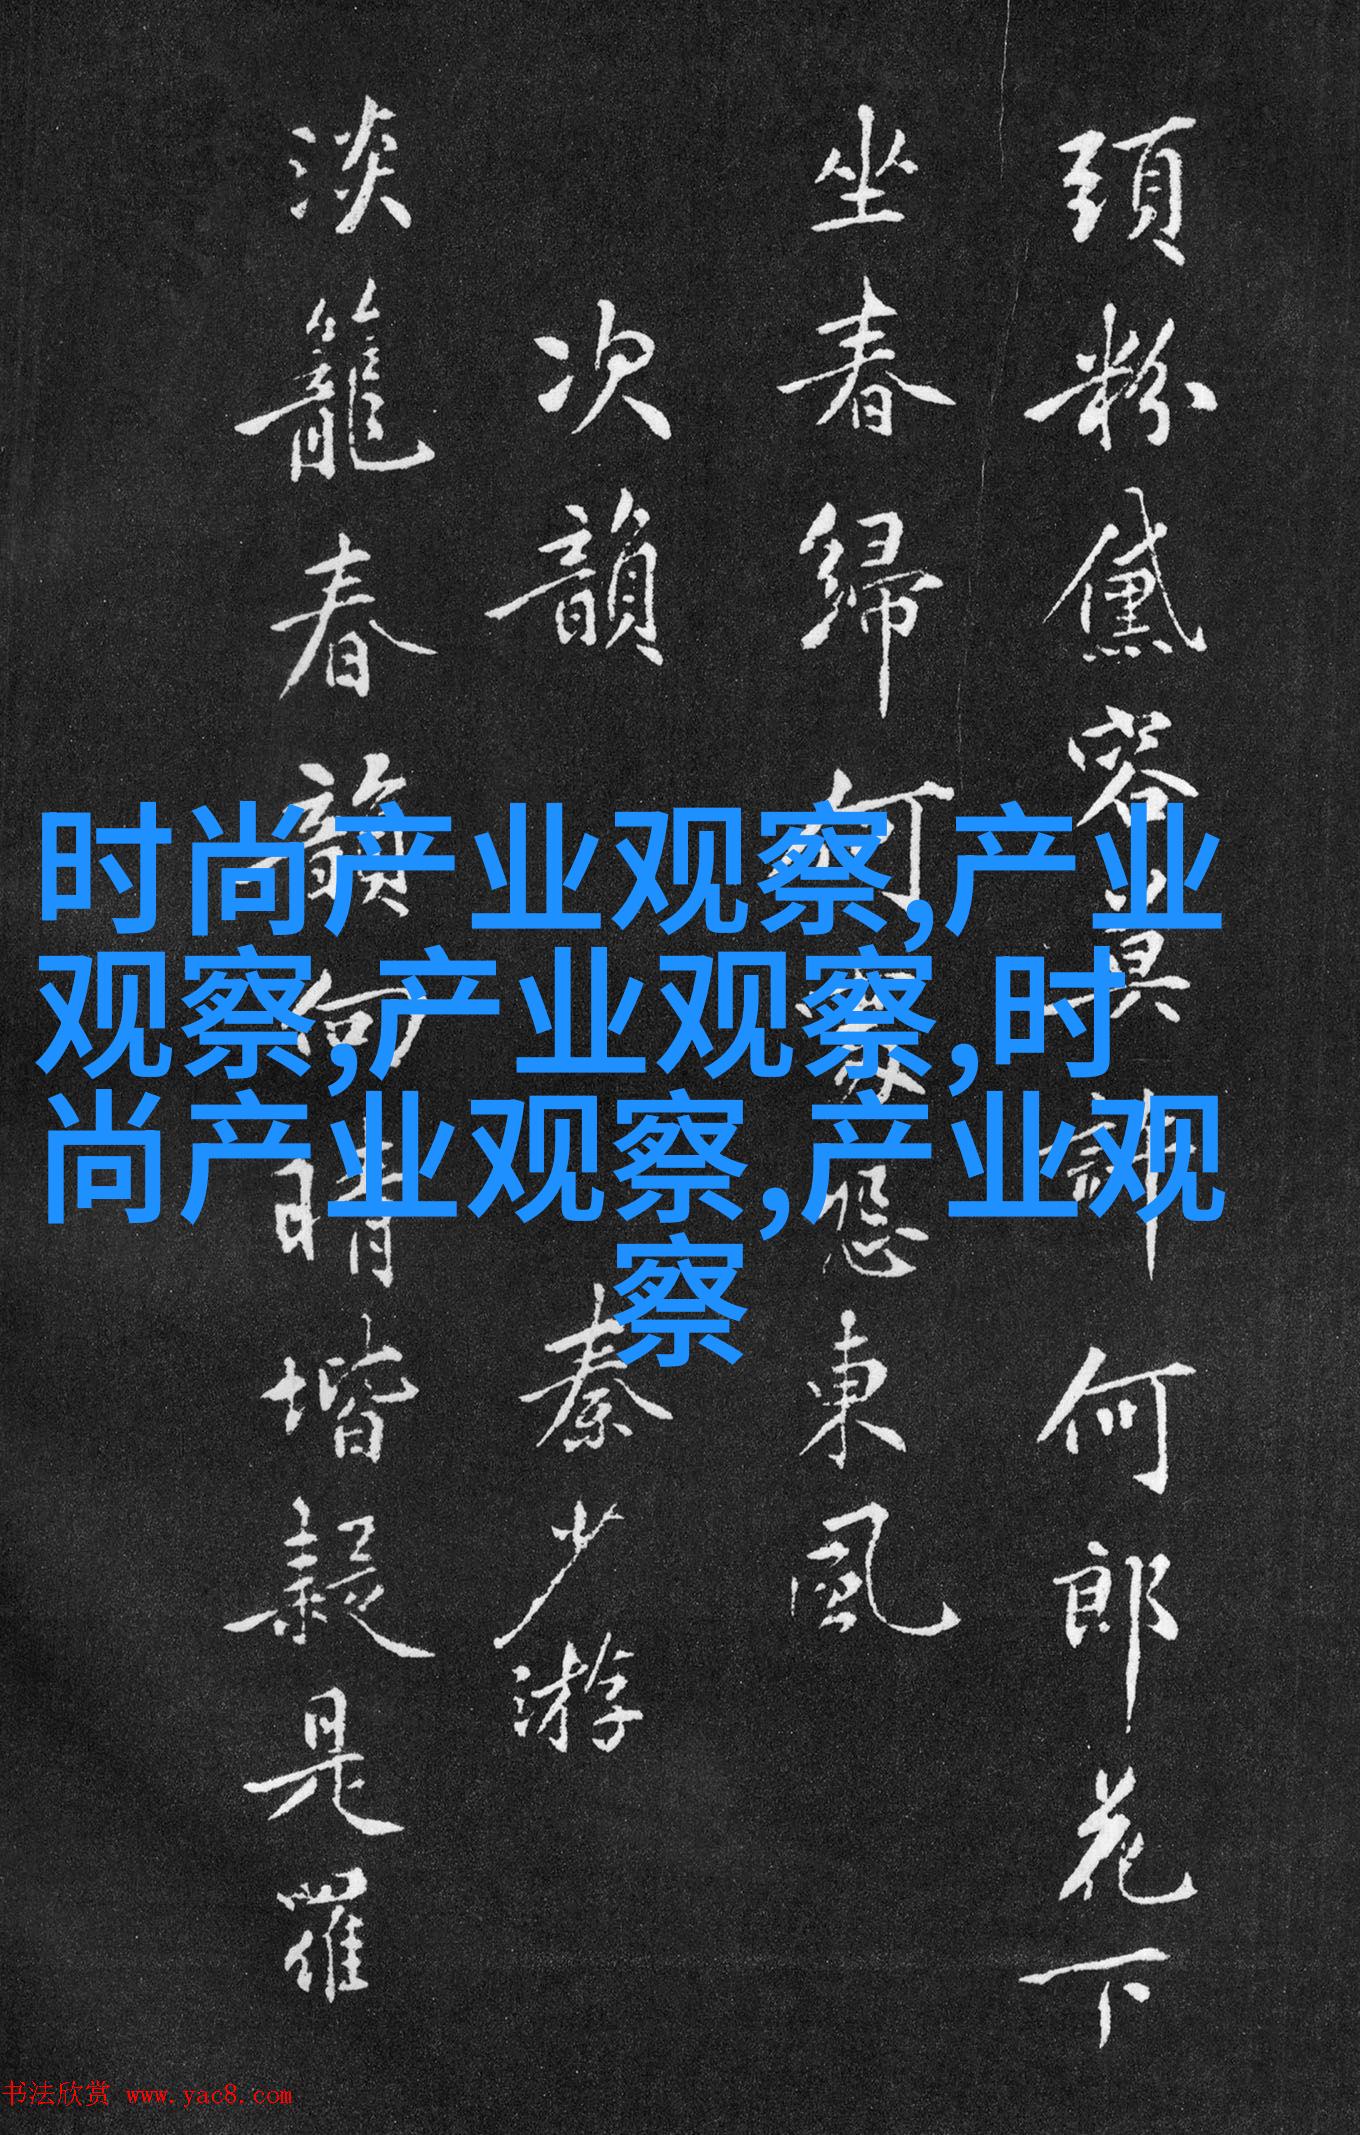 頭粉黛容莫許何郎花下
坐春歸何家怨東風
次韻 秦少游
淡籠春韻向晴堦疑是羅
时尚产业观察,产业
观察,产业观察,时
尚产业观察,产业观
察
书法欣赏 www.yac8.com